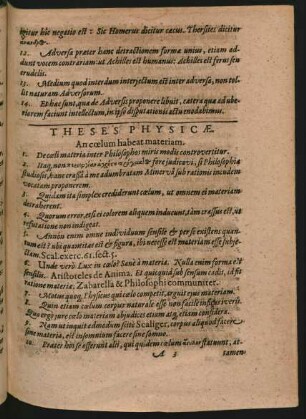 igitur hîc negatio est: Sic Homerus dicitur cæcus. Thersites dicitur
12. Adversa præter hanc detractionem formæ unius, etiam ad-
dunt vocem contrariam: ut Achilles est humanus: Achilles est ferus seu
crudelis.
13. Medium quod interdum interjectum est inter adversa, non tol-
lit naturam Adversorum.
14. Et hæc sunt, quæ de Adversis proponere libuit, cætera quæ ad ube-
riorem faciunt intellectum, in ipso disputationis actu enodabimus.
THESES PHYSICÆ.
An cœlum habeat materiam.
1. De cœli materia inter Philosophos miris modis controvertitur.
2. Itaq, non fore judicavi, si Philosophiæ
studiosis, hanc crassâ à me adumbratam Minervâ sub rationis incudem
vocatam proponerem.
3. Quidam ita simplex crediderunt cœlum, ut omnem ei materiam
detraherent.
4. Quorum error, etsi ei colorem aliquem inducunt, tam crassus est, ut
refutatione non indigeat.
5. Annitu enim omne individuum sensile & per se existens quan-
tum est? ubi quantitas est & figura, ibi necesse est materiam esse subje-
ctam. Scal. exerc. 61. sect. 5.
6. Unde verò Lux in cœlo? Sanè à materia. Nulla enim forma est
sensilis. Aristoteles de Anima. Et quicquid sub sensum cadit, id fit
ratione materiæ, Zabarella & Philosophi communiter.
7. Motus quoq, Physicus qui cœlo competit, arguit ejus materiam.
8. Quin etiam cœlum corpus naturale esse
Quo ergo jure cœlo materiam abjudicet etiam atq, etiam considera.
9. Nam ut inquit admodum scitè Scaliger, corpus aliquod facere
sine materia, est insomnium facere sine somno.
10. Præter hos se offerunt alii, qui quidem cœlum statuunt, at-
A 3 tamen